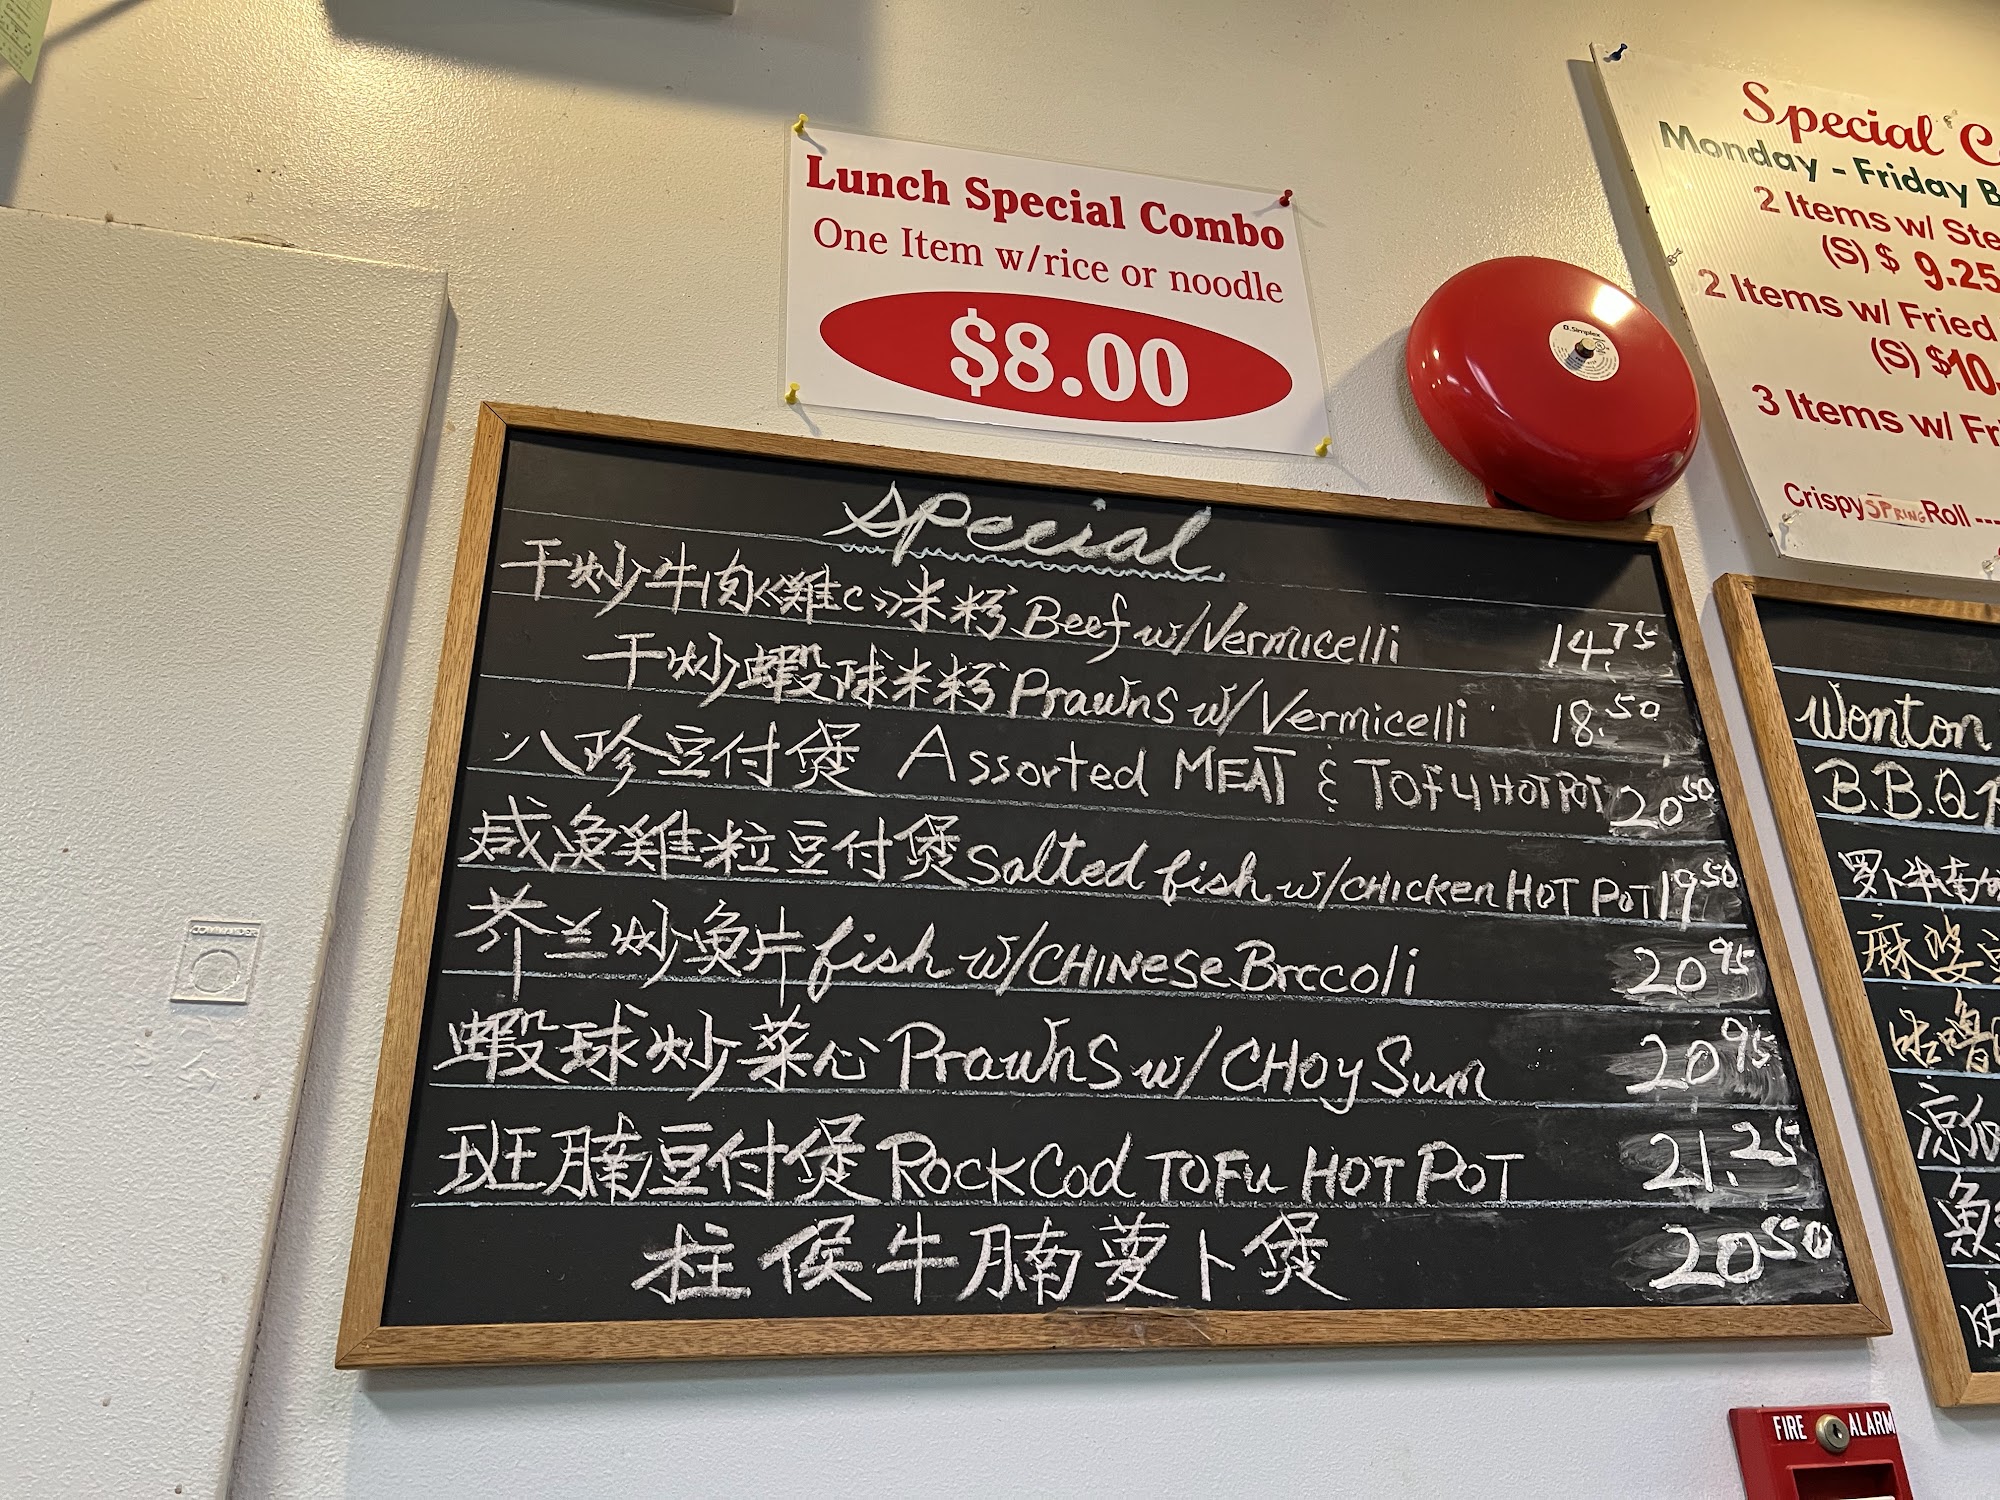 Lunch Special Combo
One Item w/rice or noodle
$8.00
Special
干炒牛肉《雞c》米粉 Beef w/Vermicelli 14.75
干炒蝦球米粉 Prawns w/Vermicelli 18.50
八珍豆付煲 Assorted MEAT & TOFU HOT POT 20 50
咸魚雞粒豆付煲 Salted fish w/CHICKEN HOT POT 19 50
芥兰炒魚片 fish w/CHINESE Broccoli 20 95
蝦球炒菜心 Prawns w/CHOY Sum 20 95
班腩豆付煲 ROCK Cod TOFU HOT POT 21.25
柱侯牛腩萝卜煲 20 50
Special
Monday - Friday
2 Items w/
(S) $ 9.25
2 Items w/ Fried
(S) $10.
3 Items w/
Crispy SPRING Roll ---
Wonton
B.B.Q
麻婆
FIRE ALARM